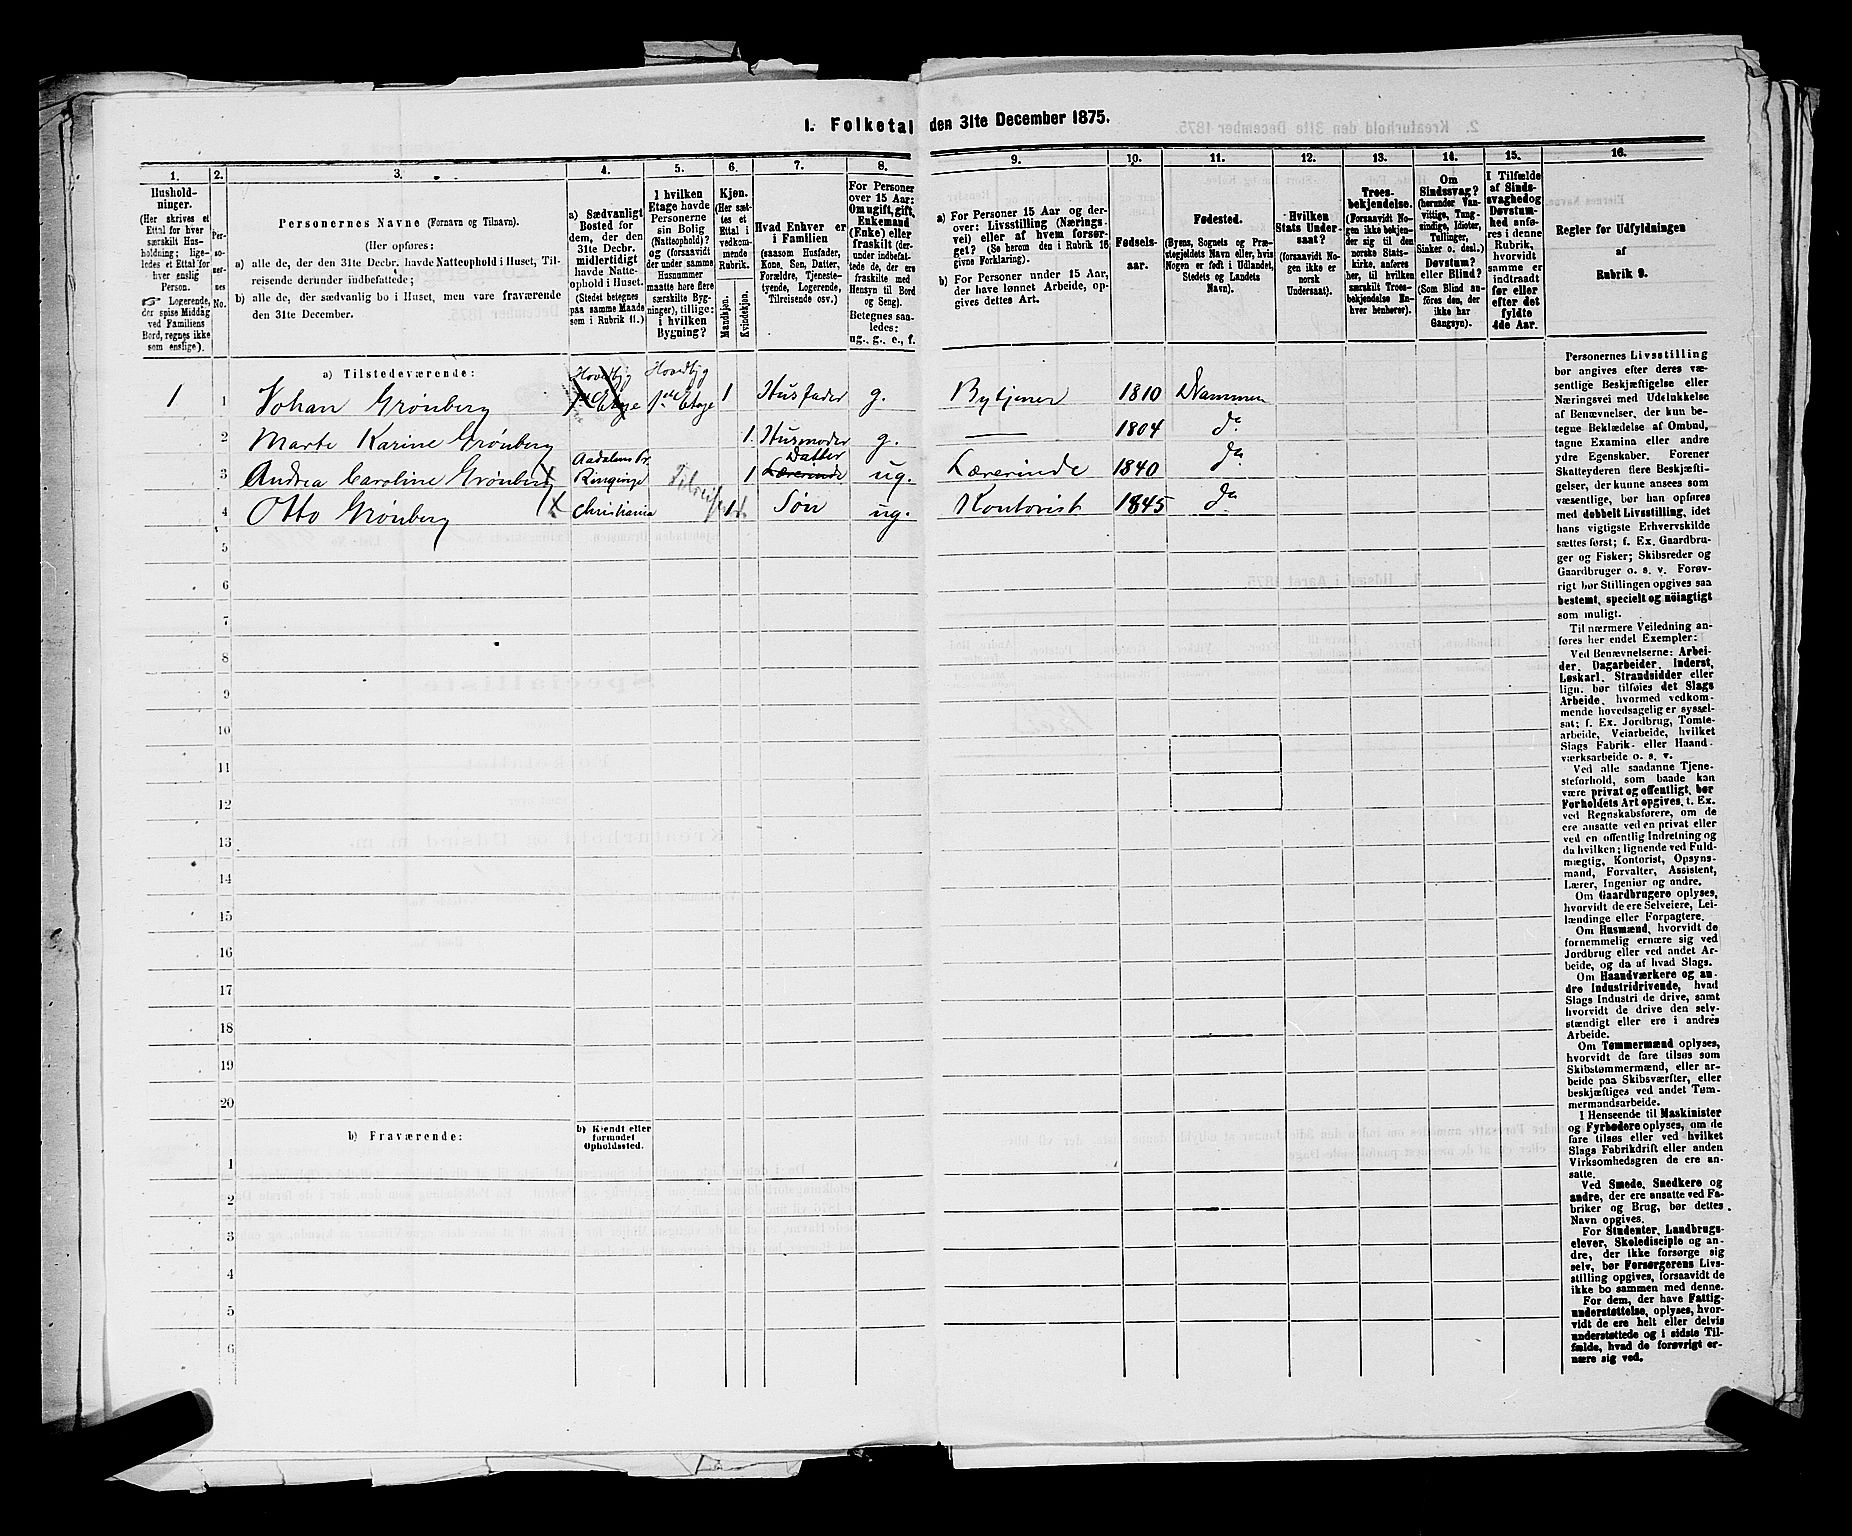 1. Folketal den 31te December 1875.
1. 2. 3. 4. 5. 6. 7. 8. 9. 10. 11. 12. 13. 14. 15. 16.
Hushold-
ninger.
(Her skrives et
Ettal for hver
særskilt Hus-
holdning; lige-
ledes et Ettal for
hver enslig
Person.
☞ Logerende,
der spise Middag
ved Familiens
Bord, regnes ikke
som enslige).
Per-
so-
ner-
nes
No.
Personernes Navne (Fornavn og Tilnavn).
(Her opføres:
a) alle de, der den 31te Decbr. havde Natteophold i Huset, Til-
reisende derunder indbefattede;
b) alle de, der sædvanlig bo i Huset, men vare fraværende
den 31te December.
a) Sædvanligt
Bosted for
dem, der den
31te Decbr.
midlertidigt
havde Natte-
ophold i Huset.
(Stedet betegnes
paa samme Maade
som i Rubrik 11.)
I hvilken
Etage havde
Personerne
sin Bolig
(Natteophold)?
og (forsaavidt
der under samme
Husnummer
maatte høre flere
særskilte Byg-
ninger), tillige:
i hvilken
Bygning?
Kjøn.
(Her sæt-
tes et
Ettal i
vedkom-
mende
Rubrik.
Mandkjøn.
Kvindekjøn.
Hvad Enhver er
i Familien
(saasom Husfader,
Kone, Søn, Datter,
Forældre, Tjeneste-
tyende, Logerende,
Tilreisende osv.)
For Personer
over 15 Aar:
Om ugift, gift,
Enkemand
(Enke) eller
fraskilt (der-
under indbefat-
tede de, der ere
fraskilte med
Hensyn til Bord
og Seng).
Betegnes saa-
ledes:
ug., g., e., f.
a) For Personer 15 Aar og der-
over: Livsstilling (Nærings-
vei) eller af hvem forsør-
get? (Se herom den i Rubrik 16
givne Forklaring).
b) For Personer under 15 Aar,
der have lønnet Arbeide, op-
gives dettes Art.
Fødsels-
aar.
Fødested.
(Byens, Sognets og Præ-
stegjeldets Navn eller, hvis
Nogen er født i Udlandet,
Stedets og Landets
Navn).
Hvilken
Stats Under-
saat?
(forsaavidt No-
gen ikke er
norsk
Undersaat).
Troes-
bekjendelse.
(Forsaavidt No-
gen ikke bekjen-
der sig til den
norske Stats-
kirke, anføres
her, til hvilken
særskilt Troes-
bekjendelse En-
hver henhører).
Om
Sindssvag?
(herunder Van-
vittige, Tung-
sindige, Idioter,
Tullinger,
Sinker o. desl.)
Døvstum?
eller Blind?
(Som Blind an-
føres den, der
ikke har
Gangsyn).
I Tilfælde
af Sinds-
svaghed og
Døvstum-
hed anfø-
res i denne
Rubrik,
hvorvidt
samme er
indtraadt
før eller
efter det
fyldte
4de Aar.
Regler for Udfyldningen
af
Rubrik 9.
a) Tilstedeværende:
Hovedbyg Hovedbyg
1 1 Johan Grønberg 1ste Etage 1ste Etage 1 Husfader g. Bytjener 1810 Drammen
2 Marte Karine Grønberg 1. Husmoder g. — 1804 do
3 Andrea Caroline Grønberg Aadalens Pr. Ringerige 1 Datter Lærerinde ug. Lærerinde 1840 do
Tilreisende
4 Otto Grønberg Christiania 1 Søn ug. Kontorist 1845 do
5
6
7
8
9
10
11
12
13
14
15
16
17
18
19
20
b) Fraværende:
b) Kjendt eller
formodet
Opholdssted.
1
2
3
4
5
6
Personernes Livsstilling
bør angives efter deres væ-
sentlige Beskjæftigelse eller
Næringsvei med Udelukkelse
af Benævnelser, der kun be-
tegne Beklædelse af Ombud,
tagne Examina eller andre
ydre Egenskaber. Forener
Skatteyderen flere Beskjæfti-
gelser, der kunne ansees som
væsentlige, bør han opføres
med dobbelt Livsstilling, idet
hans vigtigste Erhvervskilde
sættes først; f. Ex. Gaardbru-
ger og Fisker; Skibsreder og
Gaardbruger o. s. v. Forøv-
rigt bør Stillingen opgives saa
bestemt, specielt og nöiagtigt
som muligt.
Til nærmere Veiledning an-
føres her endel Exempler:
Ved Benævnelserne: Arbei-
der, Dagarbeider, Inderst,
Løskarl, Strandsidder eller
lign. bør tilføies det Slags
Arbeide, hvormed vedkom-
mende hovedsagelig er syssel-
sat; f. Ex. Jordbrug, Tomte-
arbeide, Veiarbeide, hvilket
Slags Fabrik- eller Haand-
værksarbeide o. s. v.
Ved alle saadanne Tjene-
steforhold, som baade kan
være privat og offentligt, bør
Forholdets Art opgives, t. Ex.
ved Regnskabsførere, om de
ere ansatte ved en privat eller
ved en offentlig Indretning og
da hvilken; lignende ved Fuld-
mægtig, Kontorist, Opsyns-
mand, Forvalter, Assistent,
Lærer, Ingeniør og andre.
Om Gaardbrugere oplyses,
hvorvidt de ere Selveiere, Lei-
lændinge eller Forpagtere.
Om Husmænd, hvorvidt de
fornemmelig ernære sig ved
Jordbrug eller ved andet Ar-
beide, og da af hvad Slags.
Om Haandværkere og an-
dre Industridrivende, hvad
Slags Industri de drive, samt
hvorvidt de drive den selv-
stændigt eller ere i andres
Arbeide.
Om Tømmermænd oplyses,
hvorvidt de fare tilsøs som
Skibstømmermænd, eller ar-
beide paa Skibsværfter, eller
beskjæftiges ved andet Tøm-
mermandsarbeide.
I Henseende til Maskinister
og Fyrbødere oplyses, om de
fare tilsøs eller ved hvilket
Slags Fabrikdrift eller anden
Virksomhedsgren de ere an-
satte.
Ved Smede, Snedkere og
andre, der ere ansatte ved Fa-
briker og Brug, bør dettes
Navn opgives.
For Studenter, Landbrugs-
elever, Skoledisciple og an-
dre, der ikke forsørge sig
selv, bør Forsørgerens Livs-
stilling opgives, forsaavidt de
ikke bo sammen med denne.
For dem, der have Fattig-
understøttelse, oplyses, hvor-
vidt de ere helt eller delvis
understøttede og i sidste Til-
fælde, hvad de forøvrigt er-
nære sig ved.